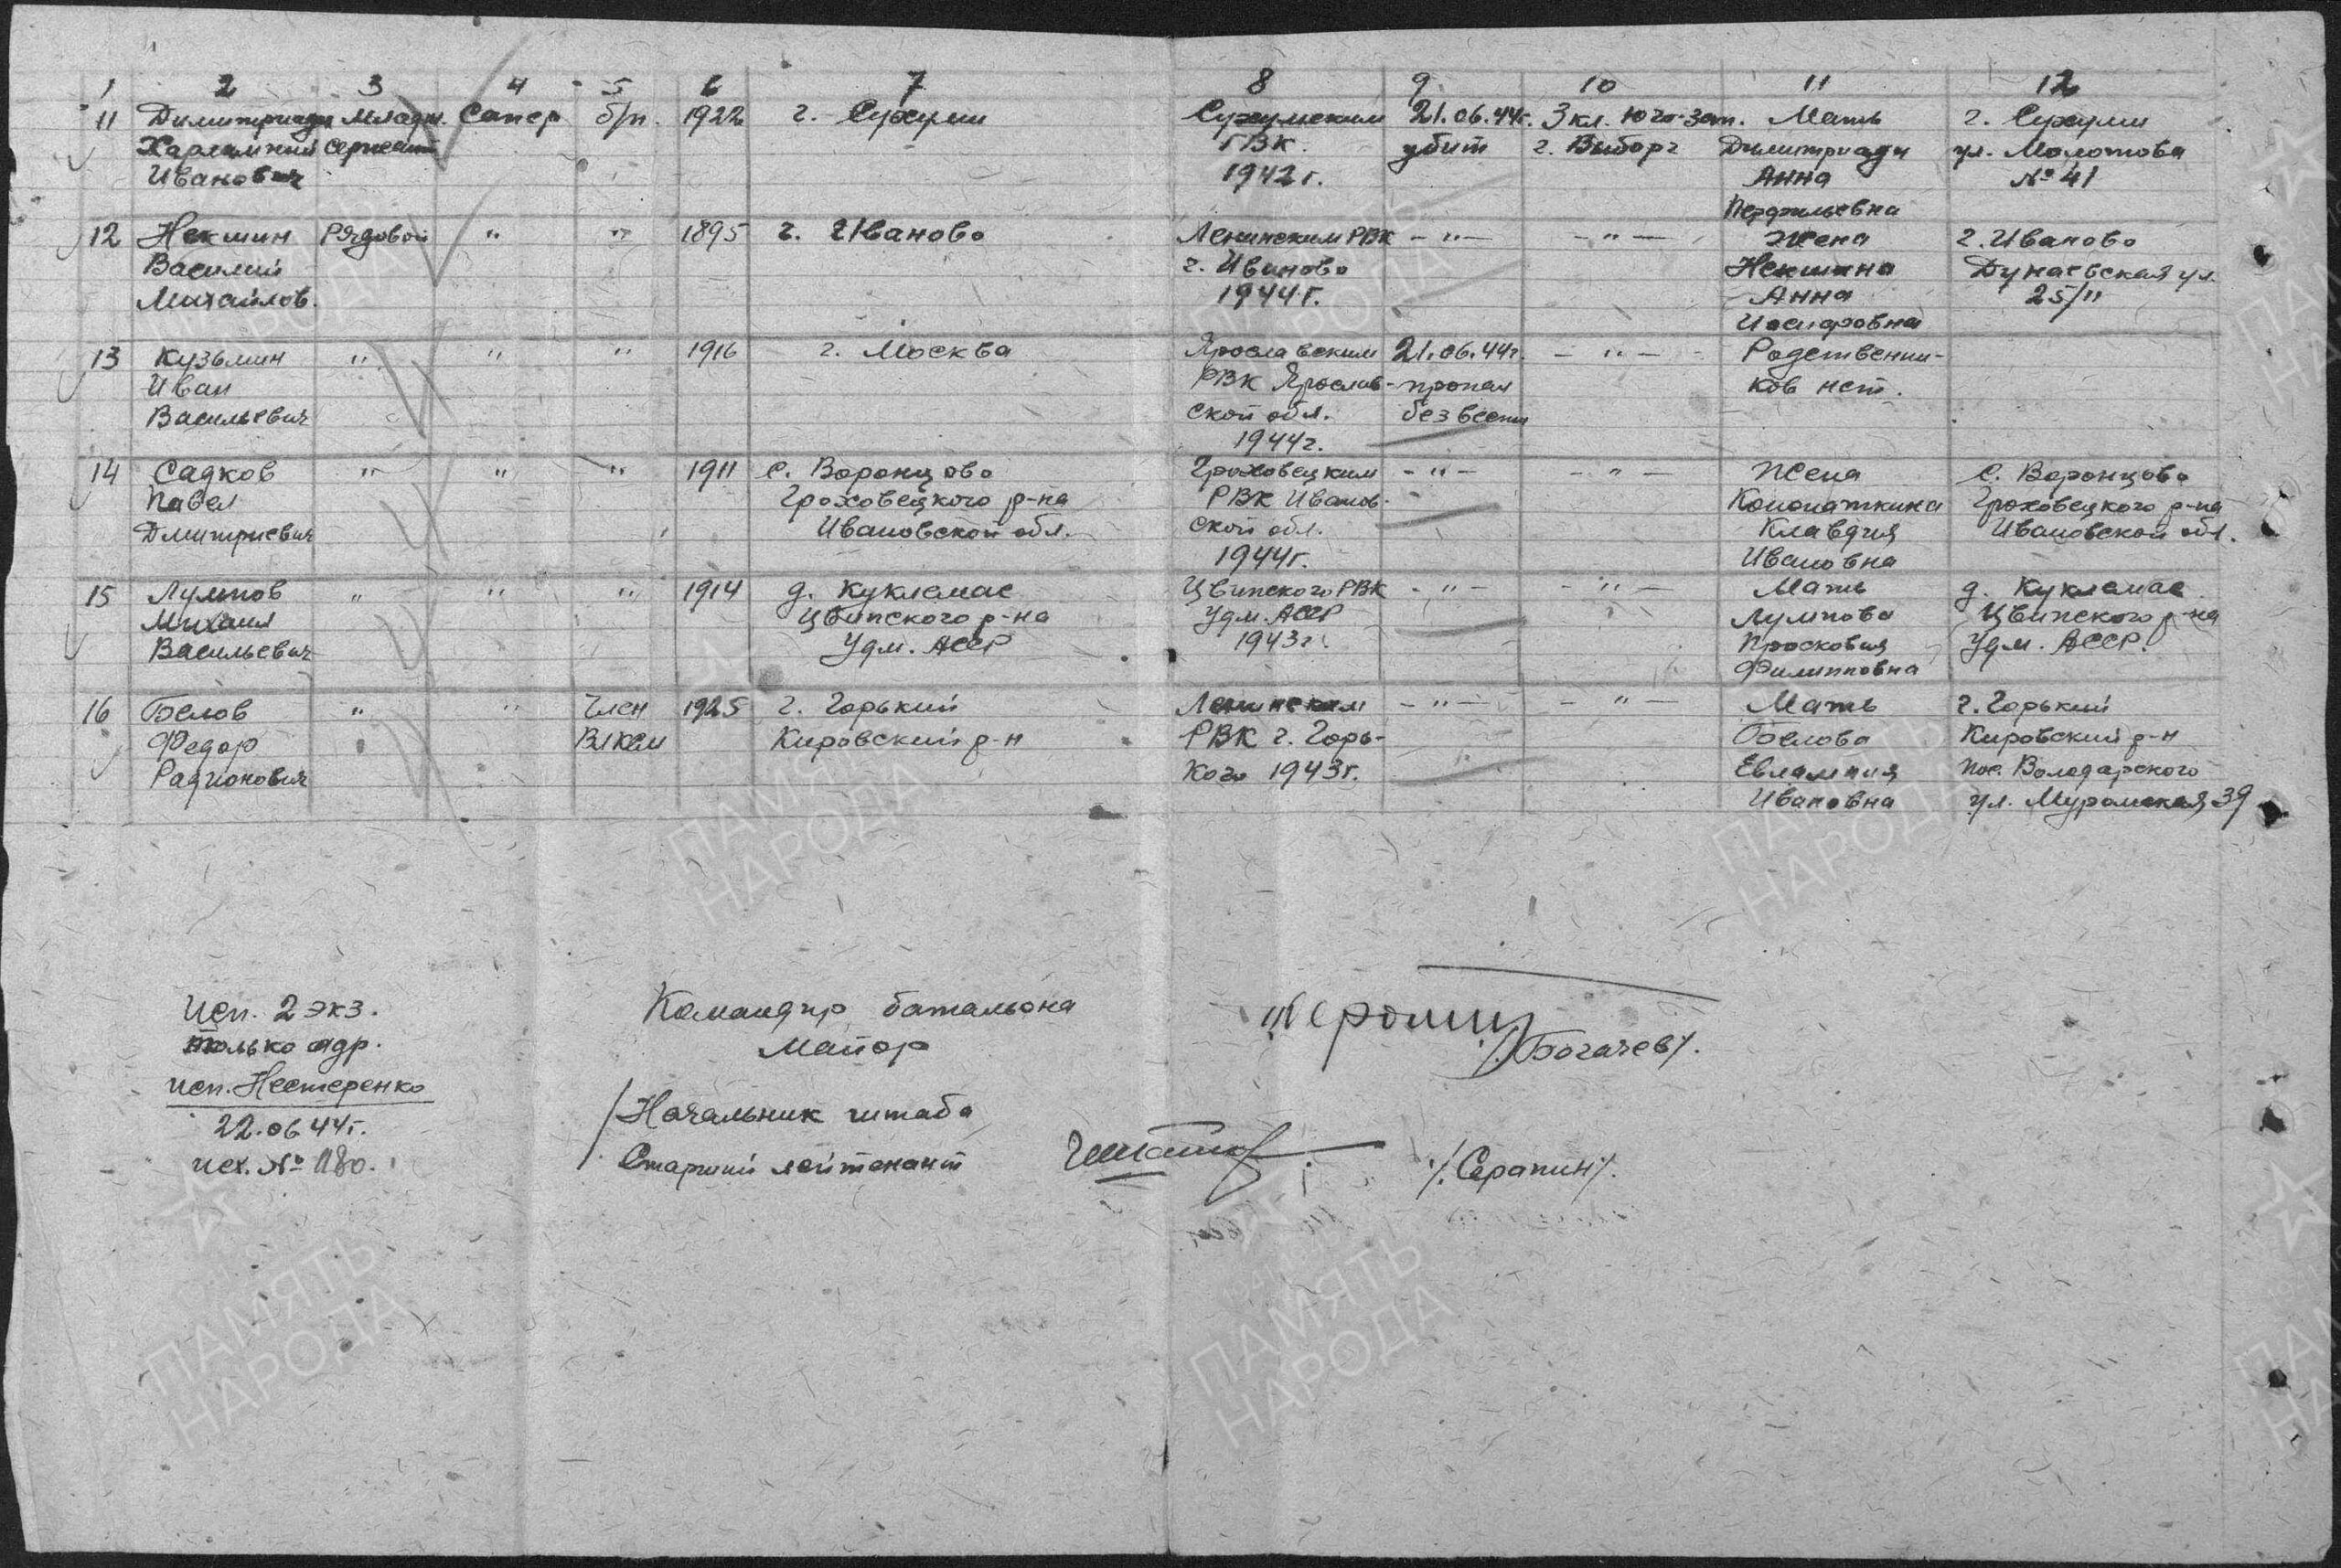 1 2 3 4 5 6 7 8 9 10 11 12
11 Димитриади Младш. Сапер б/п. 1922 г. Сухуми Сухумским 21.06.44г. 3 кл. юго-зап. Мать г. Сухуми
Харлампий сержант ГВК. убит г. Выборг Димитриади ул. Молотова
Иванович 1942 г. Анна № 41
12 Некшин Рядовой " " 1895 г. Иваново Ленинским РВК - " - - " - Жена г. Иваново
Василий г. Иваново Некшина Дунаевская ул.
Михайлов. 1944 г. Анна 25/11
Иосифовна
13 Кузьмин " " " 1916 г. Москва Ярославским 21.06.44г. - " - Родственни-
Иван РВК Ярослав- пропал ков нет.
Васильевич ской обл. без вести
1944г.
14 Садков " " " 1911 с. Воронцово Гроховецким - " - - " - Жена с. Воронцово
Павел Гроховецкого р-на РВК Иванов- Конопаткина Гроховецкого р-на
Дмитриевич Ивановской обл. ской обл. Клавдия Ивановской обл.
1944г. Ивановна
15 Лумпов " " " 1914 д. Куклемас Цвипского РВК - " - - " - Мать д. Куклемас
Михаил Цвипского р-на Удм. АССР Лумпова Цвипского р-на
Васильевич Удм. АССР 1943г. Просковия Удм. АССР.
Филипповна
16 Белов " " Член 1925 г. Горький Ленинским - " - - " - Мать г. Горький
Федор ВЛКСМ Кировский р-н РВК г. Горь- Белова Кировский р-н
Радионович кого 1943г. Евлампия пос. Володарского
Ивановна ул. Муромская, 39
Исп. 2 экз.
только адр.
исп. Нестеренко
22.06 44г.
исх. № 1180.
Командир батальона
Майор /Богачев/.
Начальник штаба
Старший лейтенант /Серапин/.
ПАМЯТЬ
НАРОДА
ПАМЯТЬ
НАРОДА
ПАМЯТЬ
НАРОДА
ПАМЯТЬ
НАРОДА